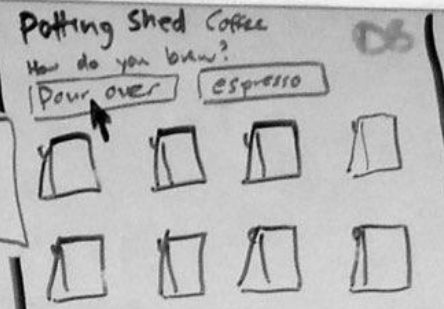 Potting Shed Coffee
DB
How do you brew?
Pour over
espresso